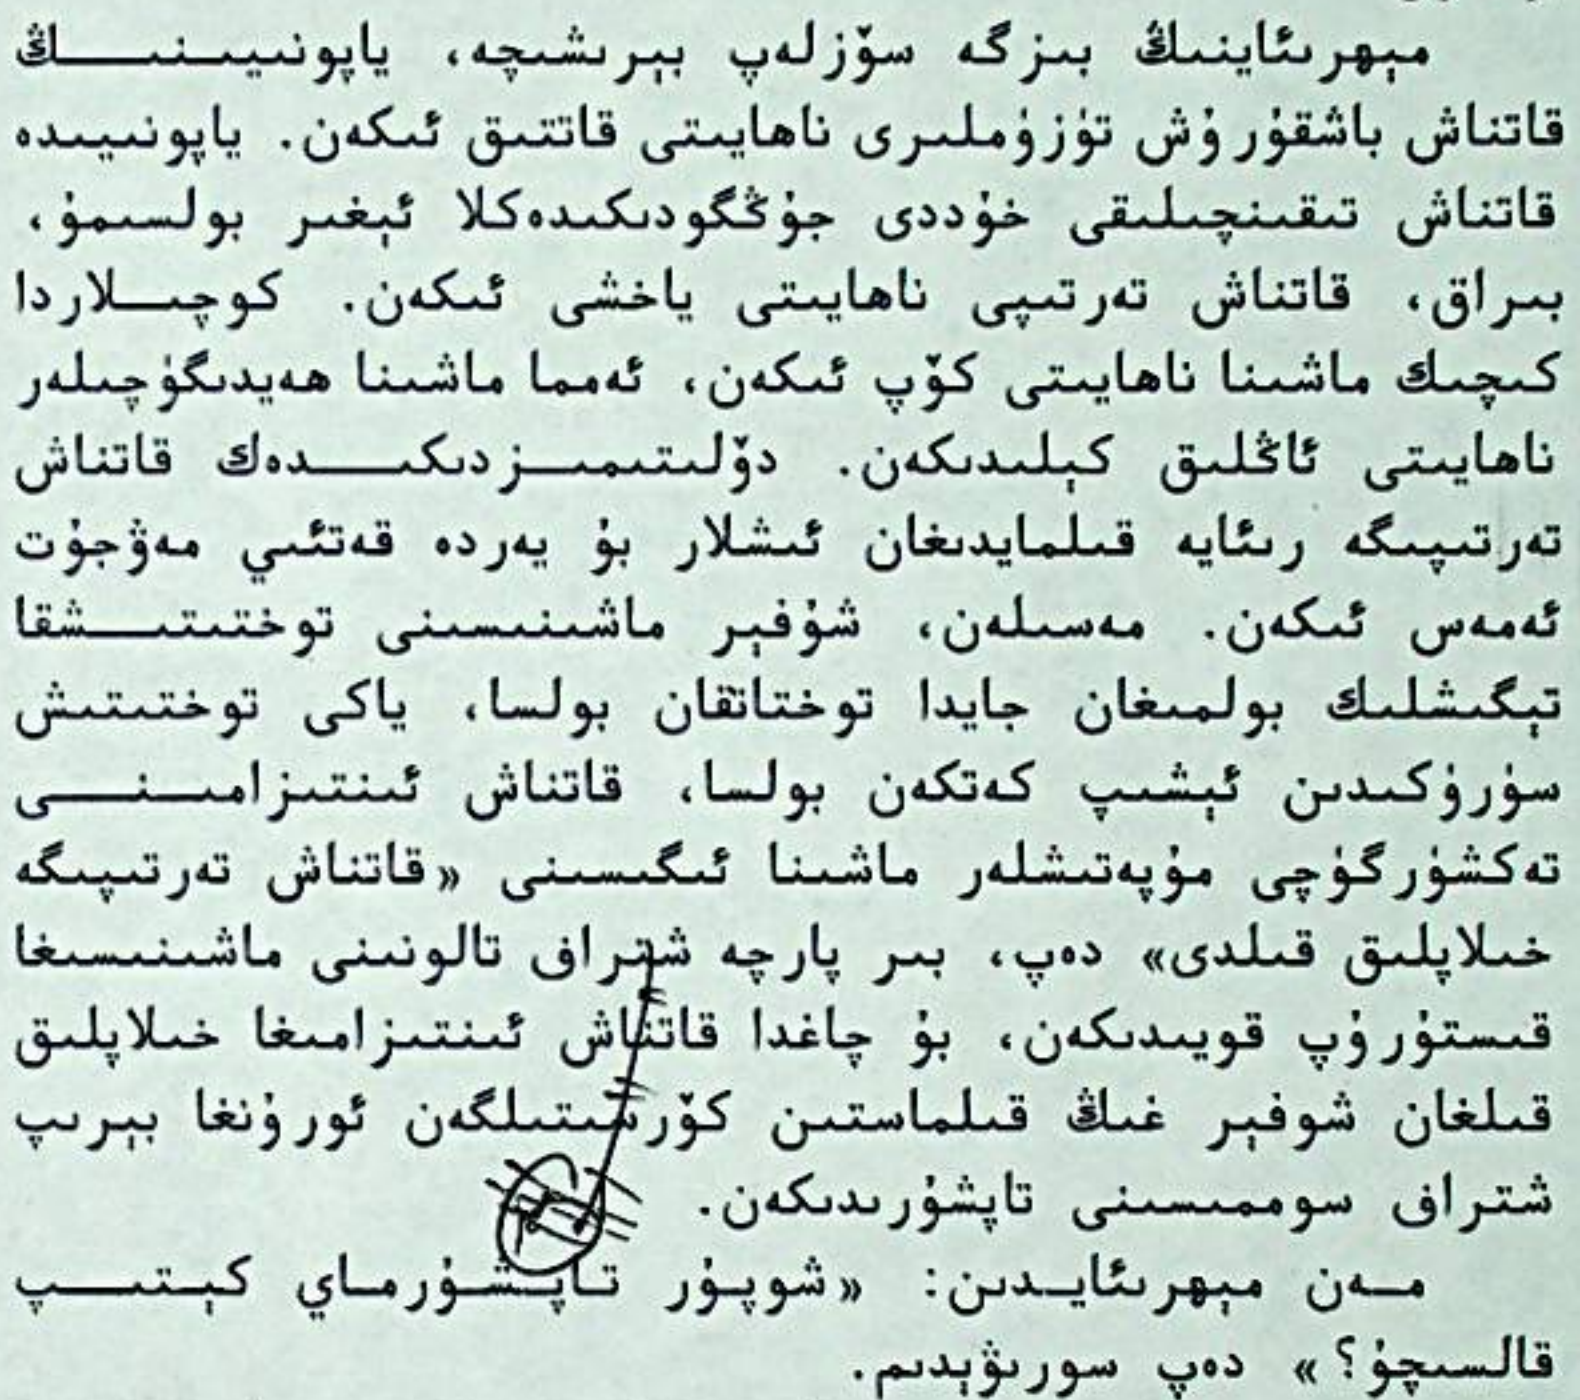 مېھرىئاينىڭ بىزگە سۆزلەپ بېرىشىچە، ياپونىيىنىڭ
قاتناش باشقۇرۇش تۈزۈملىرى ناھايىتى قاتتىق ئىكەن. ياپونىيىدە
قاتناش تىقىنچىلىقى خۇددى جۇڭگودىكىدەكلا ئېغىر بولسىمۇ،
بىراق، قاتناش تەرتىپى ناھايىتى ياخشى ئىكەن. كوچىلاردا
كىچىك ماشىنا ناھايىتى كۆپ ئىكەن، ئەمما ماشىنا ھەيدىگۈچىلەر
ناھايىتى ئاڭلىق كېلىدىكەن. دۆلىتىمىزدىكىدەك قاتناش
تەرتىپىگە رىئايە قىلمايدىغان ئىشلار بۇ يەردە قەتئىي مەۋجۇت
ئەمەس ئىكەن. مەسىلەن، شۇفېر ماشىنىسىنى توختىتىشقا
تېگىشلىك بولمىغان جايدا توختاتقان بولسا، ياكى توختىتىش
سۈرۈكىدىن ئېشىپ كەتكەن بولسا، قاتناش ئىنتىزامىنى
تەكشۈرگۈچى مۇپەتىشلەر ماشىنا ئىگىسىنى «قاتناش تەرتىپىگە
خىلاپلىق قىلدى» دەپ، بىر پارچە شتراف تالونىنى ماشىنىسىغا
قىستۇرۇپ قويىدىكەن، بۇ چاغدا قاتناش ئىنتىزامىغا خىلاپلىق
قىلغان شوفېر غىڭ قىلماستىن كۆرسىتىلگەن ئورۇنغا بېرىپ
شتراف سوممىسىنى تاپشۇرىدىكەن.
مەن مېھرىئايدىن: «شوپۇر تاپشۇرماي كېتىپ
قالسىچۇ؟» دەپ سورىۋېدىم.